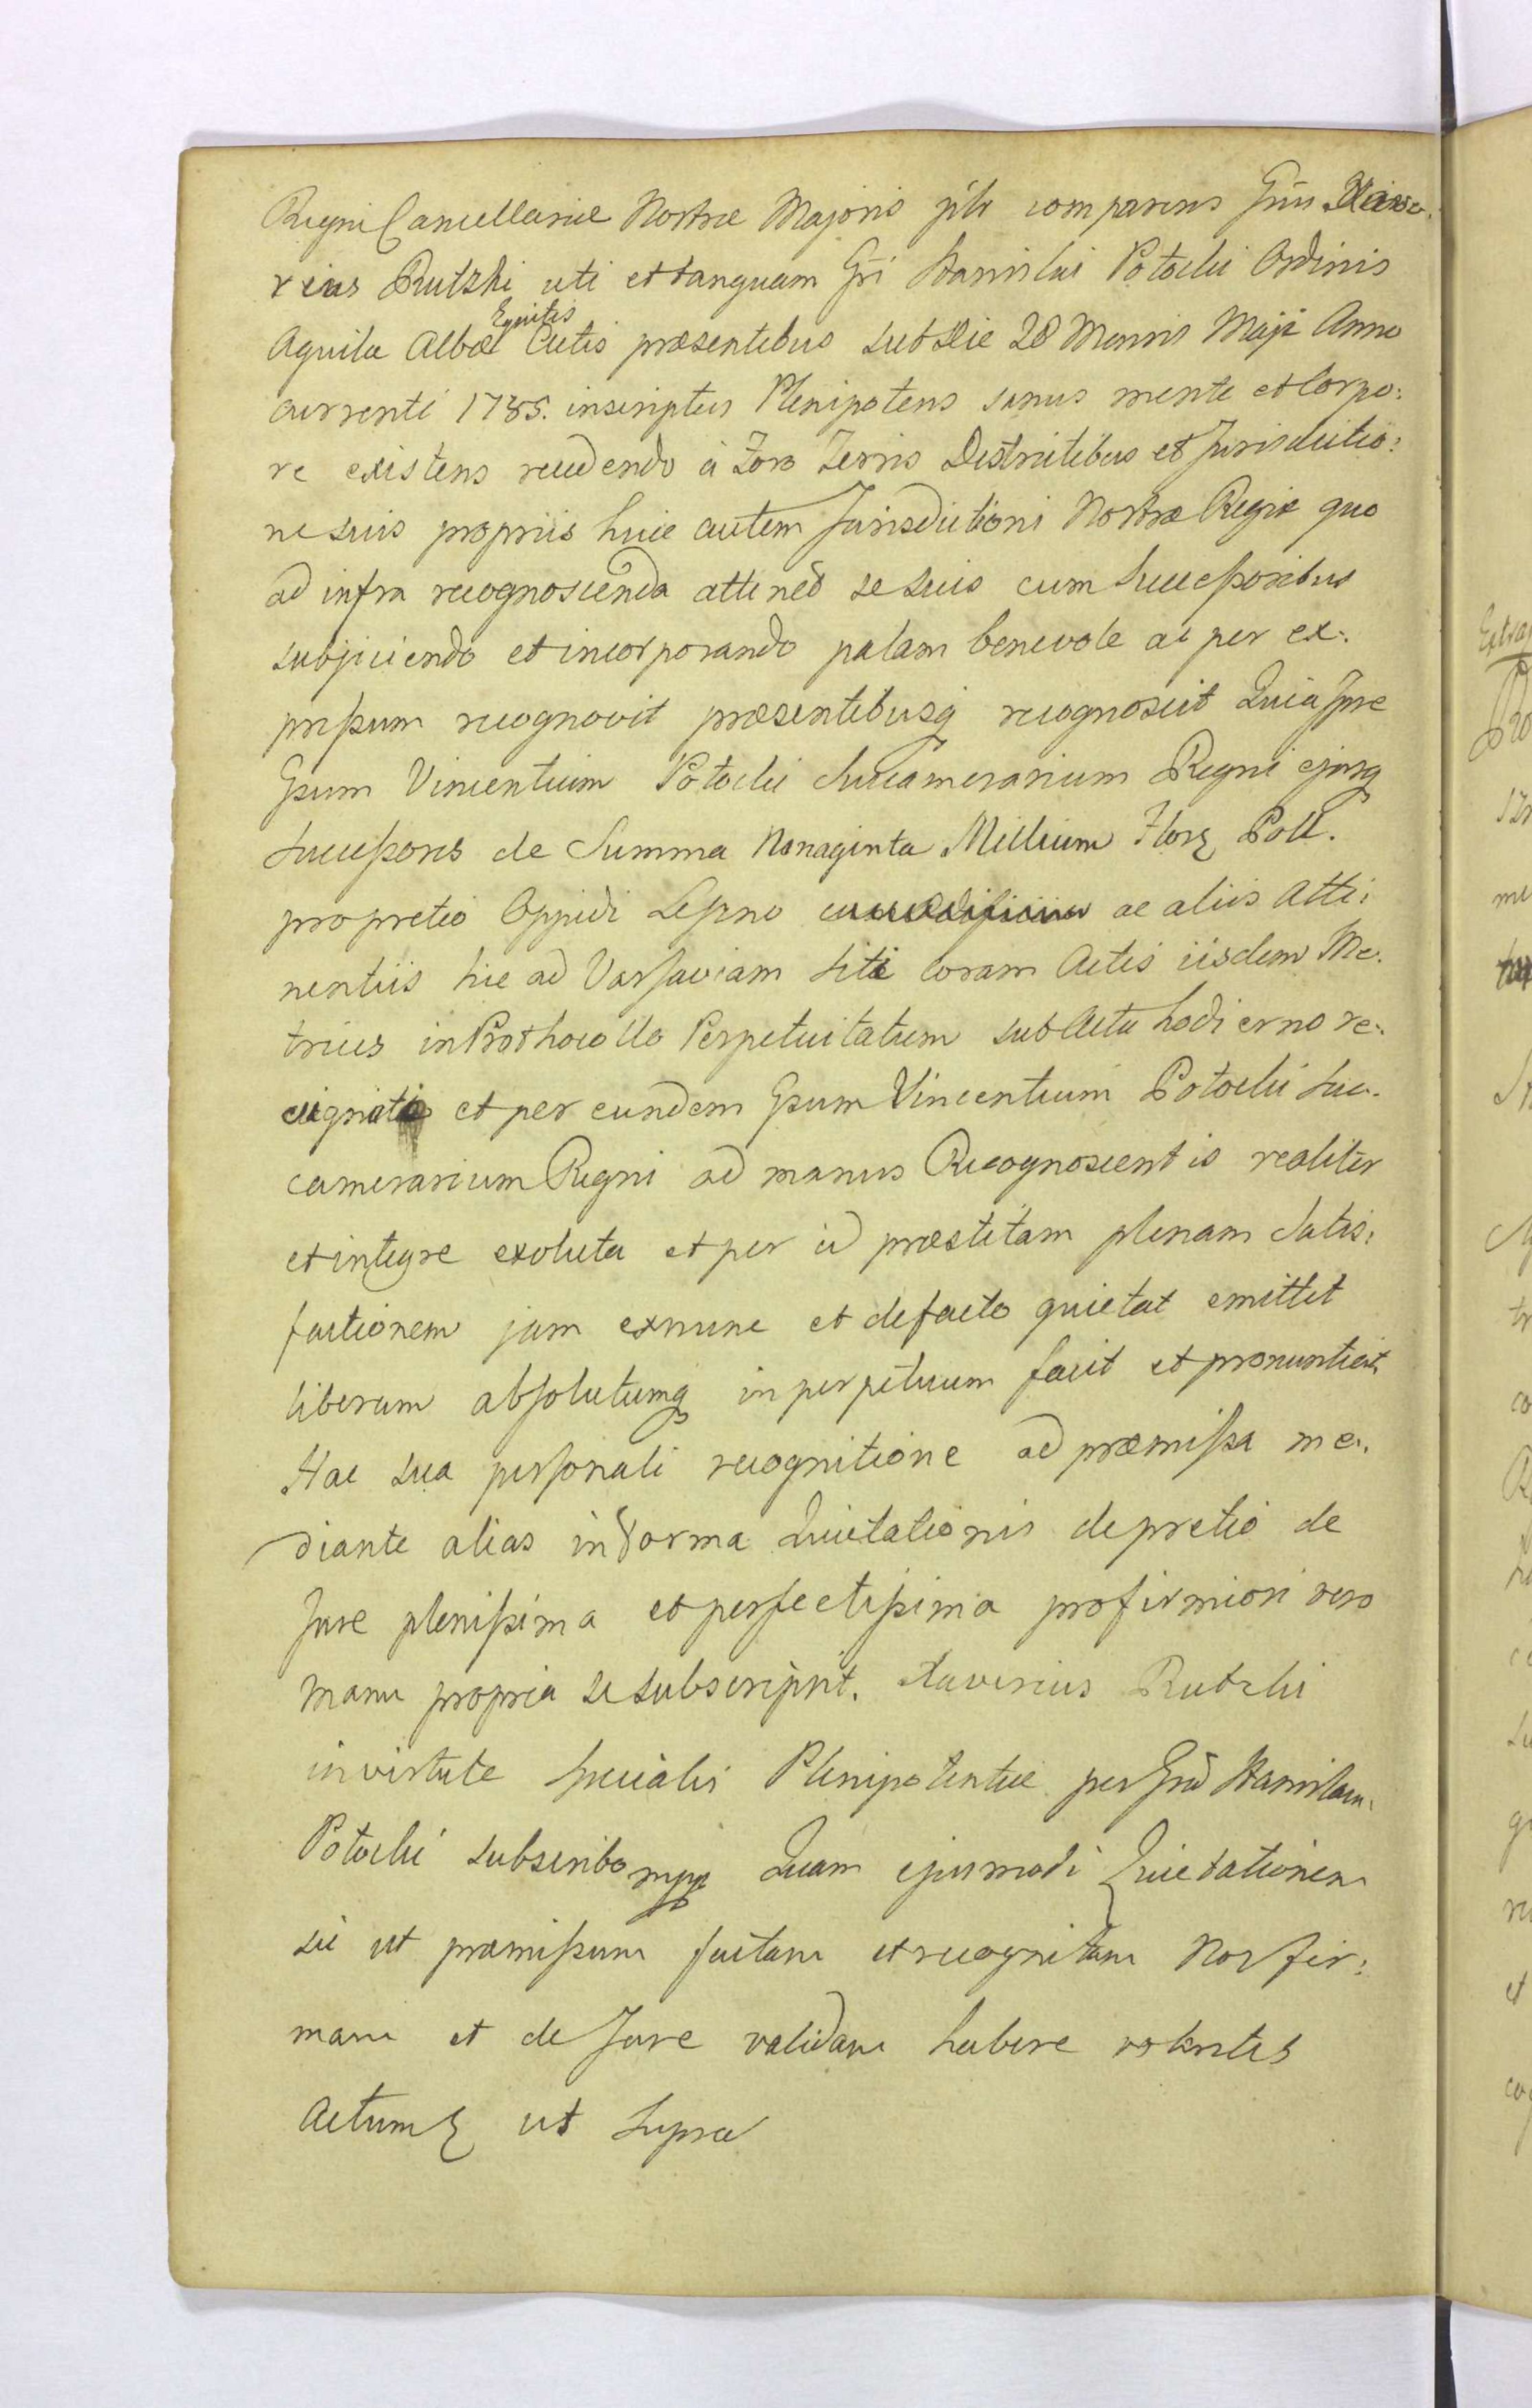 Regni Cancellariæ Nostræ Majoris psltr comparens Gsus Xawe.
rius Rutzki uti et tanquam Gsi Stanislai Potocki Ordinis
Aquilæ Albæ Equitis Actis præsentibus sub Die 28 Mensis Maji Anno
currenti 1785. inscriptus Plenipotens sanus mente et Corpo:
re existens recedendo à Foro Terris Districtibus et Jurisdictio:
ne suis propriis huic autem Jurisdictioni Nostræ Regiæ quo
ad infra recognoscenda attinet se suis cum Succeßoribus
subjiciendo et incorporando palam benevole ac per ex:
preßum recognovit præsentibusq recognoscit Quia Ipse
Gsum Vincentium Potocki Succamerarium Regni ejusq
Succeßores de Summa Nonaginta Millium Flor Poll.
pro pretio Oppidi Leszno ac aliis Atti:
nentiis hic ad Varsaviam siti coram Actis iisdem Me.
trices in Prothocollo Perpetuitatum sub Actu hodierno re:
et per eundem Gsum Vincentium Potocki Suc.
camerarium Regni ad manus Recognoscentis realiter
et integre exoluta et per id præstitam plenam Satis:
factionem jam exnunc et defacto quietat emittit
liberum absolutumq in perpetuum facit et pronuntiat
Hac sua personali recognitione ad præmißa me:
diante alias in Forma Quietationis de pretio de
Jure plenißima et perfectißima pro firmiori vero
manu propria se subscripsit. Xaverius Rutzki
in virtute specialis Plenipotentiæ per Gsum Stanislaum
Potocki subscribo mpp Quam ejusmodi Quietationem
sic ut præmißum factam et recognitam Nos fir:
mam et de Jure validam habere volentes
Actum ut Supra
Extra